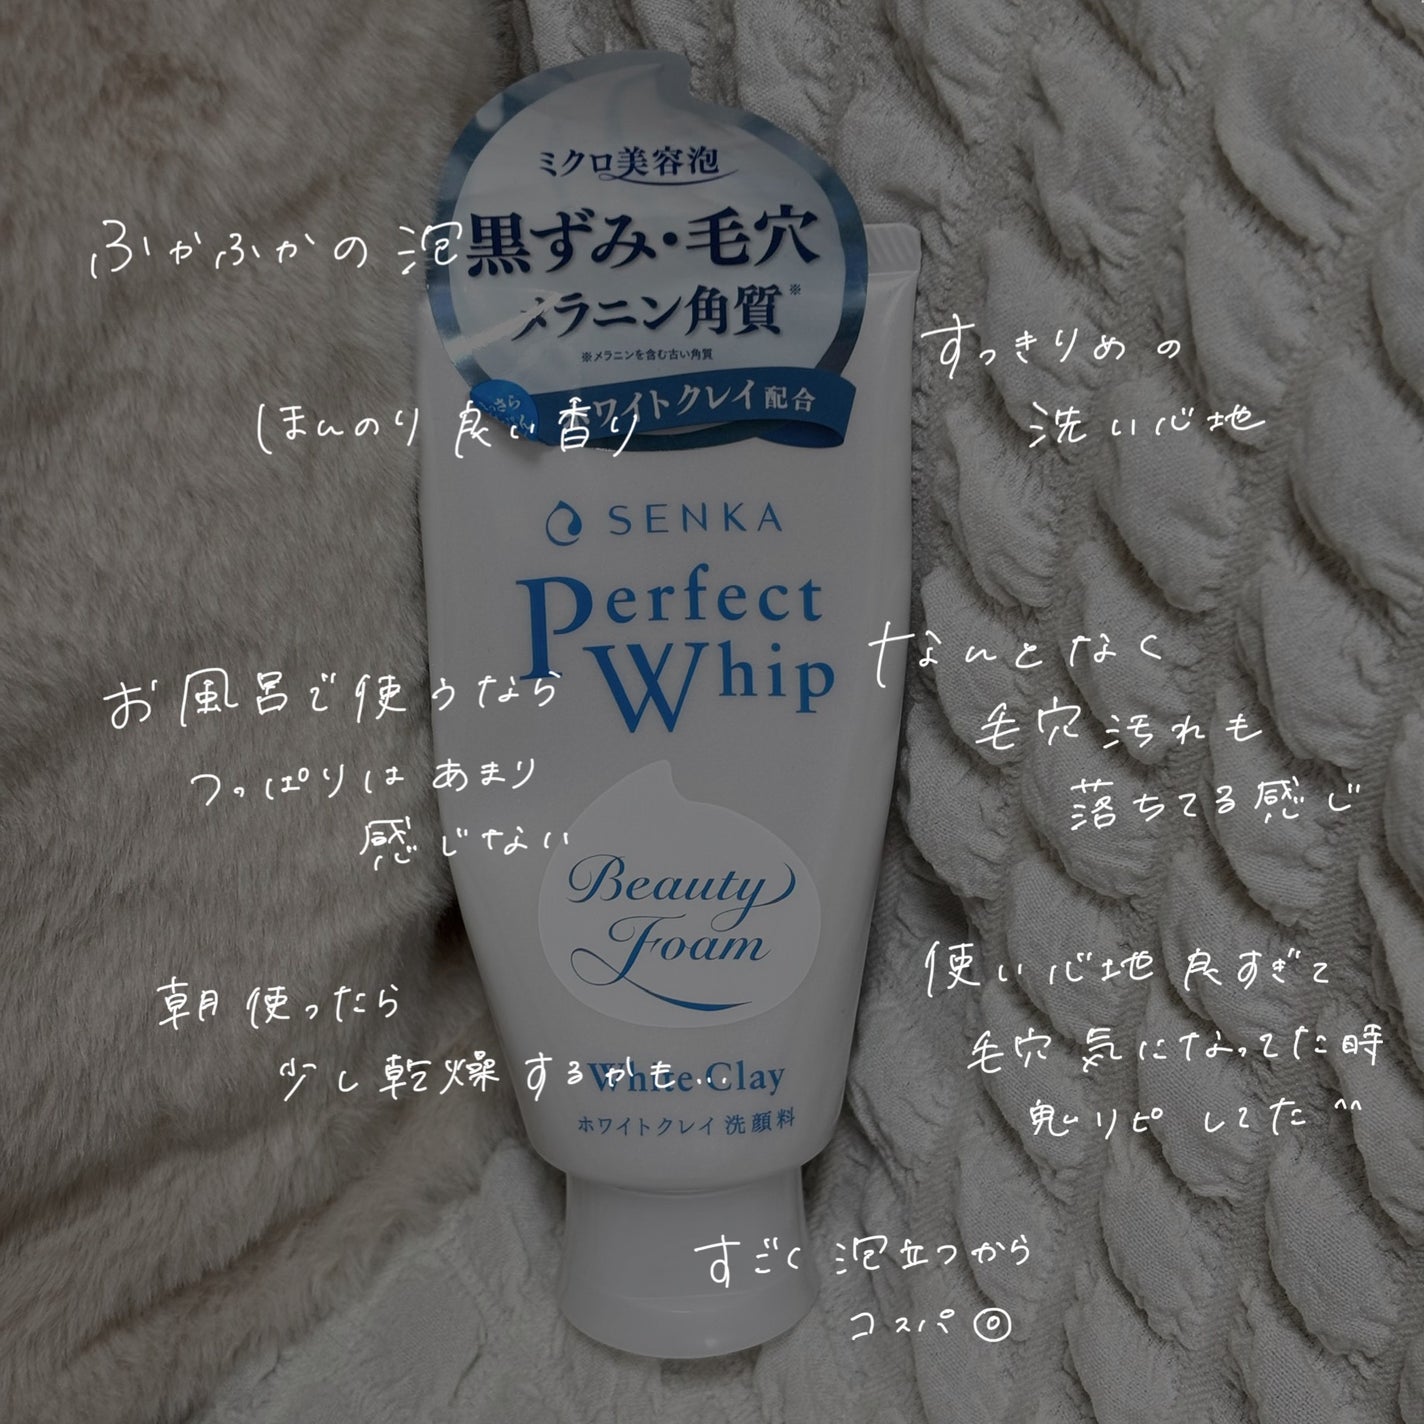 ミクロ美容泡
黒ずみ・毛穴
メラニン角質※
※メラニンを含む古い角質
ホワイトクレイ配合
SENKA
Perfect
Whip
Beauty
Foam
White Clay
ホワイトクレイ 洗顔料
ふかふかの泡
ほんのり良い香り
すっきりめの
洗い心地
お風呂で使うなら
つっぱりはあまり
感じない
なんとなく
毛穴汚れも
落ちてる感じ
朝使ったら
少し乾燥するかも…
使い心地良すぎて
毛穴気になってた時
鬼リピしてた^^
すごく泡立つから
コスパ◎